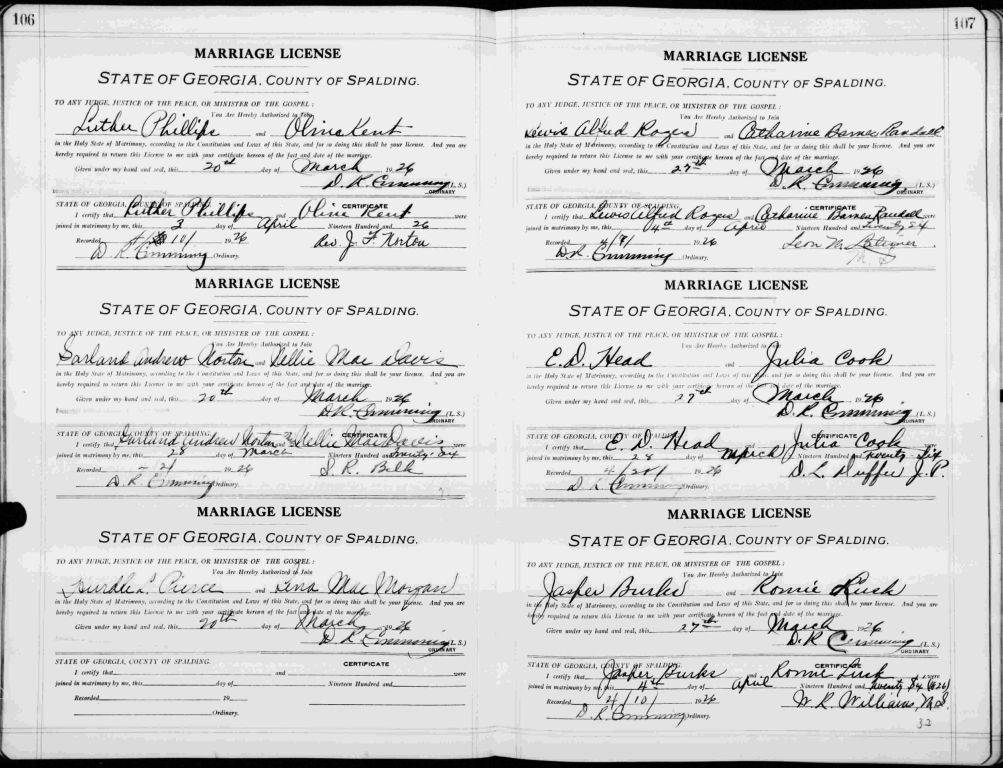 106
MARRIAGE LICENSE
STATE OF GEORGIA, COUNTY OF SPALDING.
TO ANY JUDGE, JUSTICE OF THE PEACE, OR MINISTER OF THE GOSPEL:
You Are Hereby Authorized to Join
Luther Phillips and Olive Kent
in the Holy State of Matrimony, according to the Constitution and Laws of this State, and for so doing this shall be your license. And you are
hereby required to return this License to me with your certificate hereon of the fact and date of the marriage.
Given under my hand and seal, this 20th day of March 1926
D. R. Cumming (L.S.)
ORDINARY
STATE OF GEORGIA, COUNTY OF SPALDING. CERTIFICATE
I certify that Luther Phillips and Olive Kent were
joined in matrimony by me, this 3 day of April Nineteen Hundred and 26
Recorded 10/ 1926 Rev. J. F. Norton
D. R. Cumming Ordinary.
MARRIAGE LICENSE
STATE OF GEORGIA, COUNTY OF SPALDING.
TO ANY JUDGE, JUSTICE OF THE PEACE, OR MINISTER OF THE GOSPEL:
You Are Hereby Authorized to Join
Garland Andrew Norton and Nellie Mae Davis
in the Holy State of Matrimony, according to the Constitution and Laws of this State, and for so doing this shall be your license. And you are
hereby required to return this License to me with your certificate hereon of the fact and date of the marriage.
Given under my hand and seal, this 20th day of March 1926
D. R. Cumming (L.S.)
ORDINARY
STATE OF GEORGIA, COUNTY OF SPALDING. CERTIFICATE
I certify that Garland Andrew Norton and Nellie Mae Davis were
joined in matrimony by me, this 28 day of March Nineteen Hundred and twenty-six
Recorded 1926 S. R. Belk
D. R. Cumming Ordinary.
MARRIAGE LICENSE
STATE OF GEORGIA, COUNTY OF SPALDING.
TO ANY JUDGE, JUSTICE OF THE PEACE, OR MINISTER OF THE GOSPEL:
You Are Hereby Authorized to Join
Pierce and Lena Mae Morgan
in the Holy State of Matrimony, according to the Constitution and Laws of this State, and for so doing this shall be your license. And you are
hereby required to return this License to me with your certificate hereon of the fact and date of the marriage.
Given under my hand and seal, this 20th day of March 1926
D. R. Cumming (L.S.)
ORDINARY
STATE OF GEORGIA, COUNTY OF SPALDING. CERTIFICATE
I certify that and were
joined in matrimony by me, this day of Nineteen Hundred and
Recorded 19
Ordinary.
107
MARRIAGE LICENSE
STATE OF GEORGIA, COUNTY OF SPALDING.
TO ANY JUDGE, JUSTICE OF THE PEACE, OR MINISTER OF THE GOSPEL:
You Are Hereby Authorized to Join
Lewis Alfred Rogers and Catharine Barnes Randall
in the Holy State of Matrimony, according to the Constitution and Laws of this State, and for so doing this shall be your license. And you are
hereby required to return this License to me with your certificate hereon of the fact and date of the marriage.
Given under my hand and seal, this 27th day of March 1926
D. R. Cumming (L.S.)
ORDINARY
STATE OF GEORGIA, COUNTY OF SPALDING. CERTIFICATE
I certify that Lewis Alfred Rogers and Catharine Barnes Randall were
joined in matrimony by me, this 4th day of April Nineteen Hundred and twenty six
Recorded 4/9/ 1926 Leon M. Latimer
D. R. Cumming Ordinary.
MARRIAGE LICENSE
STATE OF GEORGIA, COUNTY OF SPALDING.
TO ANY JUDGE, JUSTICE OF THE PEACE, OR MINISTER OF THE GOSPEL:
You Are Hereby Authorized to Join
E. D. Head and Julia Cook
in the Holy State of Matrimony, according to the Constitution and Laws of this State, and for so doing this shall be your license. And you are
hereby required to return this License to me with your certificate hereon of the fact and date of the marriage.
Given under my hand and seal, this 27th day of March 1926
D. R. Cumming (L.S.)
ORDINARY
STATE OF GEORGIA, COUNTY OF SPALDING. CERTIFICATE
I certify that E. D. Head and Julia Cook were
joined in matrimony by me, this 28 day of March Nineteen Hundred and twenty-six
Recorded 4/20/ 1926 D. L. Duffee J. P.
D. R. Cumming Ordinary.
MARRIAGE LICENSE
STATE OF GEORGIA, COUNTY OF SPALDING.
TO ANY JUDGE, JUSTICE OF THE PEACE, OR MINISTER OF THE GOSPEL:
You Are Hereby Authorized to Join
Jasper Burks and Ronnie Lusk
in the Holy State of Matrimony, according to the Constitution and Laws of this State, and for so doing this shall be your license. And you are
hereby required to return this License to me with your certificate hereon of the fact and date of the marriage.
Given under my hand and seal, this 27th day of March 1926
D. R. Cumming (L.S.)
ORDINARY
STATE OF GEORGIA, COUNTY OF SPALDING. CERTIFICATE
I certify that Jasper Burks and Ronnie Lusk were
joined in matrimony by me, this 4th day of April Nineteen Hundred and twenty six (1926)
Recorded 4/10/ 1926 W. R. Williams, M.G.
D. R. Cumming Ordinary.
32